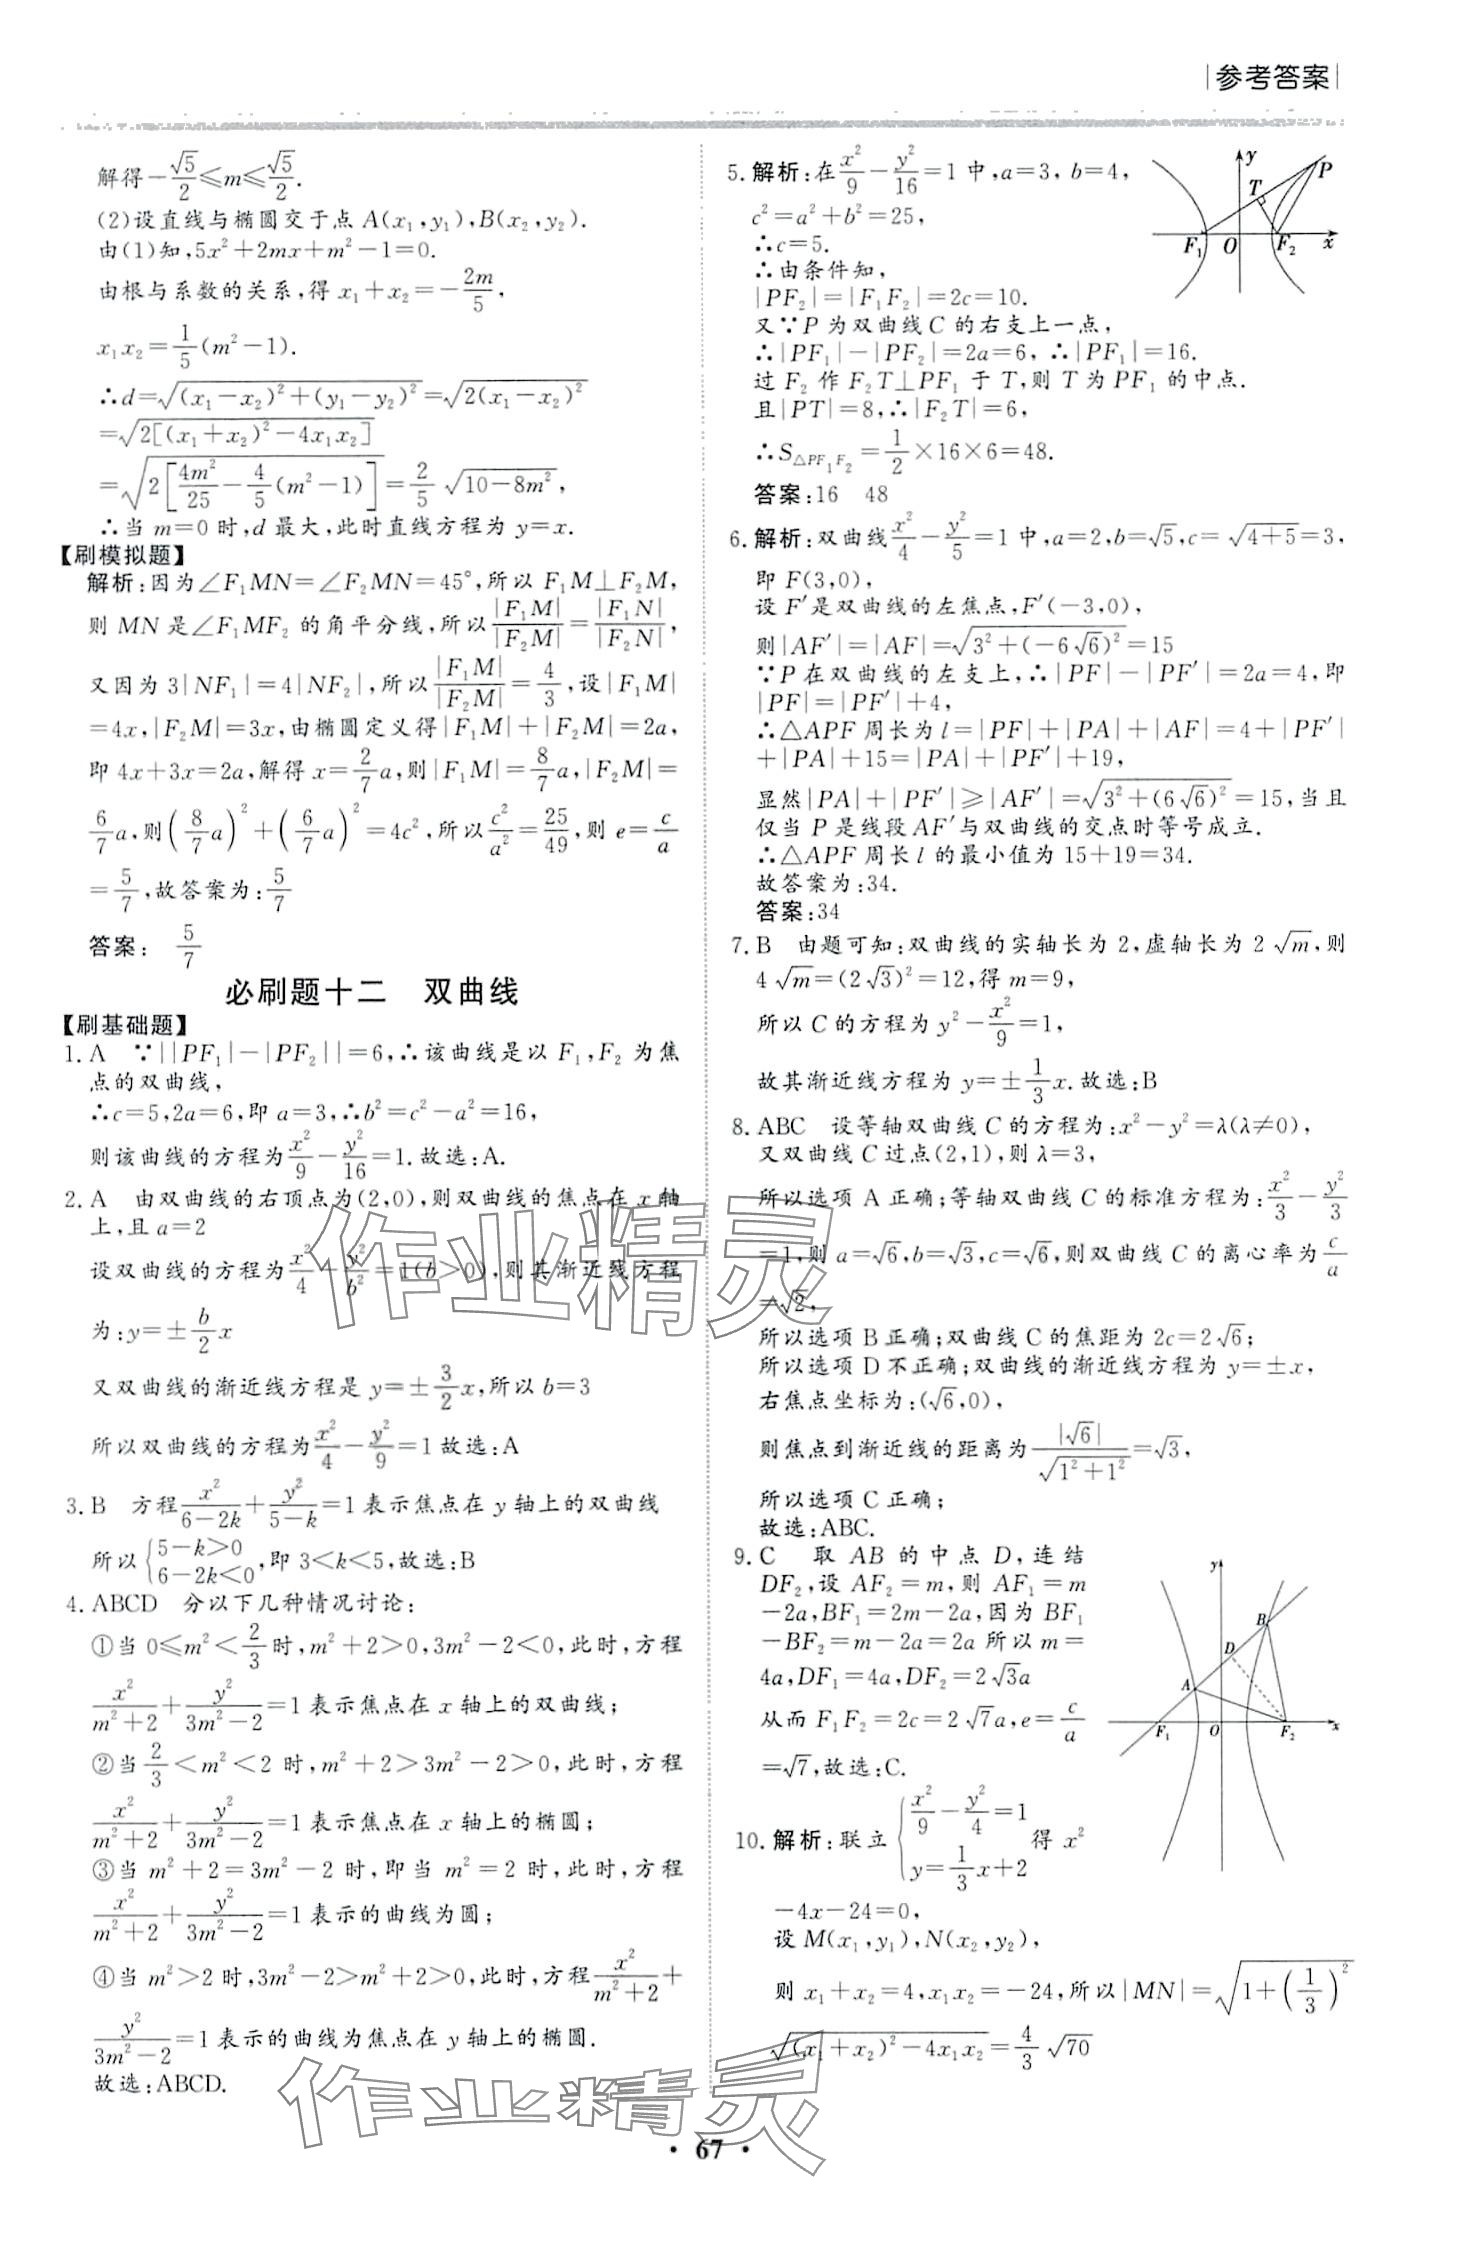 参考答案
解得-√5/2≤m≤√5/2.
(2)设直线与椭圆交于点 A(x₁,y₁),B(x₂,y₂).
由(1)知,5x²+2mx+m²-1=0.
由根与系数的关系,得 x₁+x₂=-2m/5,
x₁x₂=1/5(m²-1).
∴d=√((x₁-x₂)²+(y₁-y₂)²)=√(2(x₁-x₂)²)
=√(2[(x₁+x₂)²-4x₁x₂])
=√(2[4m²/25-4/5(m²-1)])=2/5 √(10-8m²),
∴当 m=0 时,d 最大,此时直线方程为 y=x.
【刷模拟题】
解析:因为∠F₁MN=∠F₂MN=45°,所以 F₁M⊥F₂M,
则 MN 是∠F₁MF₂ 的角平分线,所以|F₁M|/|F₂M|=|F₁N|/|F₂N|,
又因为 3|NF₁|=4|NF₂|,所以|F₁M|/|F₂M|=4/3,设|F₁M|
=4x,|F₂M|=3x,由椭圆定义得|F₁M|+|F₂M|=2a,
即 4x+3x=2a,解得 x=2/7a,则|F₁M|=8/7a,|F₂M|=
6/7a,则(8/7a)²+(6/7a)²=4c²,所以c²/a²=25/49,则 e=c/a
=5/7,故答案为:5/7
答案: 5/7
必刷题十二 双曲线
【刷基础题】
1. A ∵||PF₁|-|PF₂||=6,∴该曲线是以 F₁,F₂ 为焦
点的双曲线,
∴c=5,2a=6,即 a=3,∴b²=c²-a²=16,
则该曲线的方程为x²/9-y²/16=1.故选:A.
2. A 由双曲线的右顶点为(2,0),则双曲线的焦点在 x 轴
上,且 a=2
设双曲线的方程为x²/4-y²/b²=1(b>0),则其渐近线方程
为:y=±b/2x
又双曲线的渐近线方程是 y=±3/2x,所以 b=3
所以双曲线的方程为x²/4-y²/9=1 故选:A
3. B 方程x²/(6-2k)+y²/(5-k)=1 表示焦点在 y 轴上的双曲线
所以{5-k>0
6-2k<0,即 3<k<5,故选:B
4. ABCD 分以下几种情况讨论:
①当 0≤m²<2/3时,m²+2>0,3m²-2<0,此时,方程
x²/(m²+2)+y²/(3m²-2)=1 表示焦点在 x 轴上的双曲线;
②当2/3<m²<2 时,m²+2>3m²-2>0,此时,方程
x²/(m²+2)+y²/(3m²-2)=1 表示焦点在 x 轴上的椭圆;
③当 m²+2=3m²-2 时,即当 m²=2 时,此时,方程
x²/(m²+2)+y²/(3m²-2)=1 表示的曲线为圆;
④当 m²>2 时,3m²-2>m²+2>0,此时,方程x²/(m²+2)+
y²/(3m²-2)=1 表示的曲线为焦点在 y 轴上的椭圆.
故选:ABCD.
5. 解析:在x²/9-y²/16=1 中,a=3, b=4,
c²=a²+b²=25,
∴c=5.
∴由条件知,
|PF₂|=|F₁F₂|=2c=10.
又∵P 为双曲线 C 的右支上一点,
∴|PF₁|-|PF₂|=2a=6, ∴|PF₁|=16.
过 F₂ 作 F₂T⊥PF₁ 于 T,则 T 为 PF₁ 的中点.
且|PT|=8,∴|F₂T|=6,
∴S△PF₁F₂=1/2×16×6=48.
答案:16 48
y
T
P
F₁
O
F₂
x
6. 解析:双曲线x²/4-y²/5=1 中,a=2,b=√5,c= √(4+5)=3,
即 F(3,0),
设 F′是双曲线的左焦点,F′(-3,0),
则|AF′|=|AF|=√(3²+(-6√6)²)=15
∵P 在双曲线的左支上,∴|PF|-|PF′|=2a=4,即
|PF|=|PF′|+4,
∴△APF 周长为 l=|PF|+|PA|+|AF|=4+|PF′|
+|PA|+15=|PA|+|PF′|+19,
显然|PA|+|PF′|≥|AF′|=√(3²+(6√6)²)=15,当且
仅当 P 是线段 AF′与双曲线的交点时等号成立.
∴△APF 周长 l 的最小值为 15+19=34.
故答案为:34.
答案:34
7. B 由题可知:双曲线的实轴长为 2,虚轴长为 2√m,则
4√m=(2√3)²=12,得 m=9,
所以 C 的方程为 y²-x²/9=1,
故其渐近线方程为 y=±1/3x.故选:B
8. ABC 设等轴双曲线 C 的方程为:x²-y²=λ(λ≠0),
又双曲线 C 过点(2,1),则 λ=3,
所以选项 A 正确;等轴双曲线 C 的标准方程为:x²/3-y²/3
=1,则 a=√6,b=√3,c=√6,则双曲线 C 的离心率为c/a
=√2,
所以选项 B 正确;双曲线 C 的焦距为 2c=2√6;
所以选项 D 不正确;双曲线的渐近线方程为 y=±x,
右焦点坐标为:(√6,0),
则焦点到渐近线的距离为|√6|/√(1²+1²)=√3,
所以选项 C 正确;
故选:ABC.
9. C 取 AB 的中点 D,连结
DF₂,设 AF₂=m,则 AF₁=m
-2a,BF₁=2m-2a,因为 BF₁
-BF₂=m-2a=2a 所以 m=
4a,DF₁=4a,DF₂=2√3a
从而 F₁F₂=2c=2√7a,e=c/a
=√7,故选:C.
y
B
D
A
F₁
O
F₂
x
10. 解析:联立{x²/9-y²/4=1
y=1/3x+2 得 x²
-4x-24=0,
设 M(x₁,y₁),N(x₂,y₂),
则 x₁+x₂=4,x₁x₂=-24,所以|MN|=√(1+(1/3)²)
√((x₁+x₂)²-4x₁x₂)=4/3 √70
作业精灵
作业精灵
· 67 ·